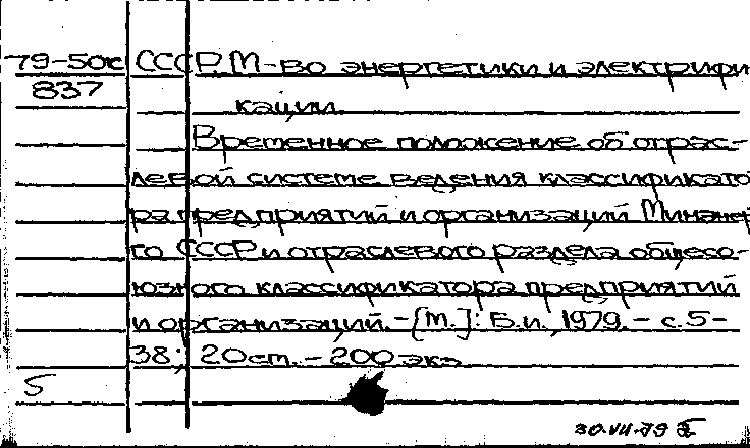 79-50к СССР. М-во энергетики и электрифи
837
кации.
Временное положение об отрас-
левой системе ведения классификато
ра предприятий и организаций Минэнер
го СССР и отраслевого раздела общесо-
юзного классификатора предприятий
и организаций. - [М.]: Б.и., 1979. - с. 5-
38; 20 см. - 200 экз
5
30.VII.79